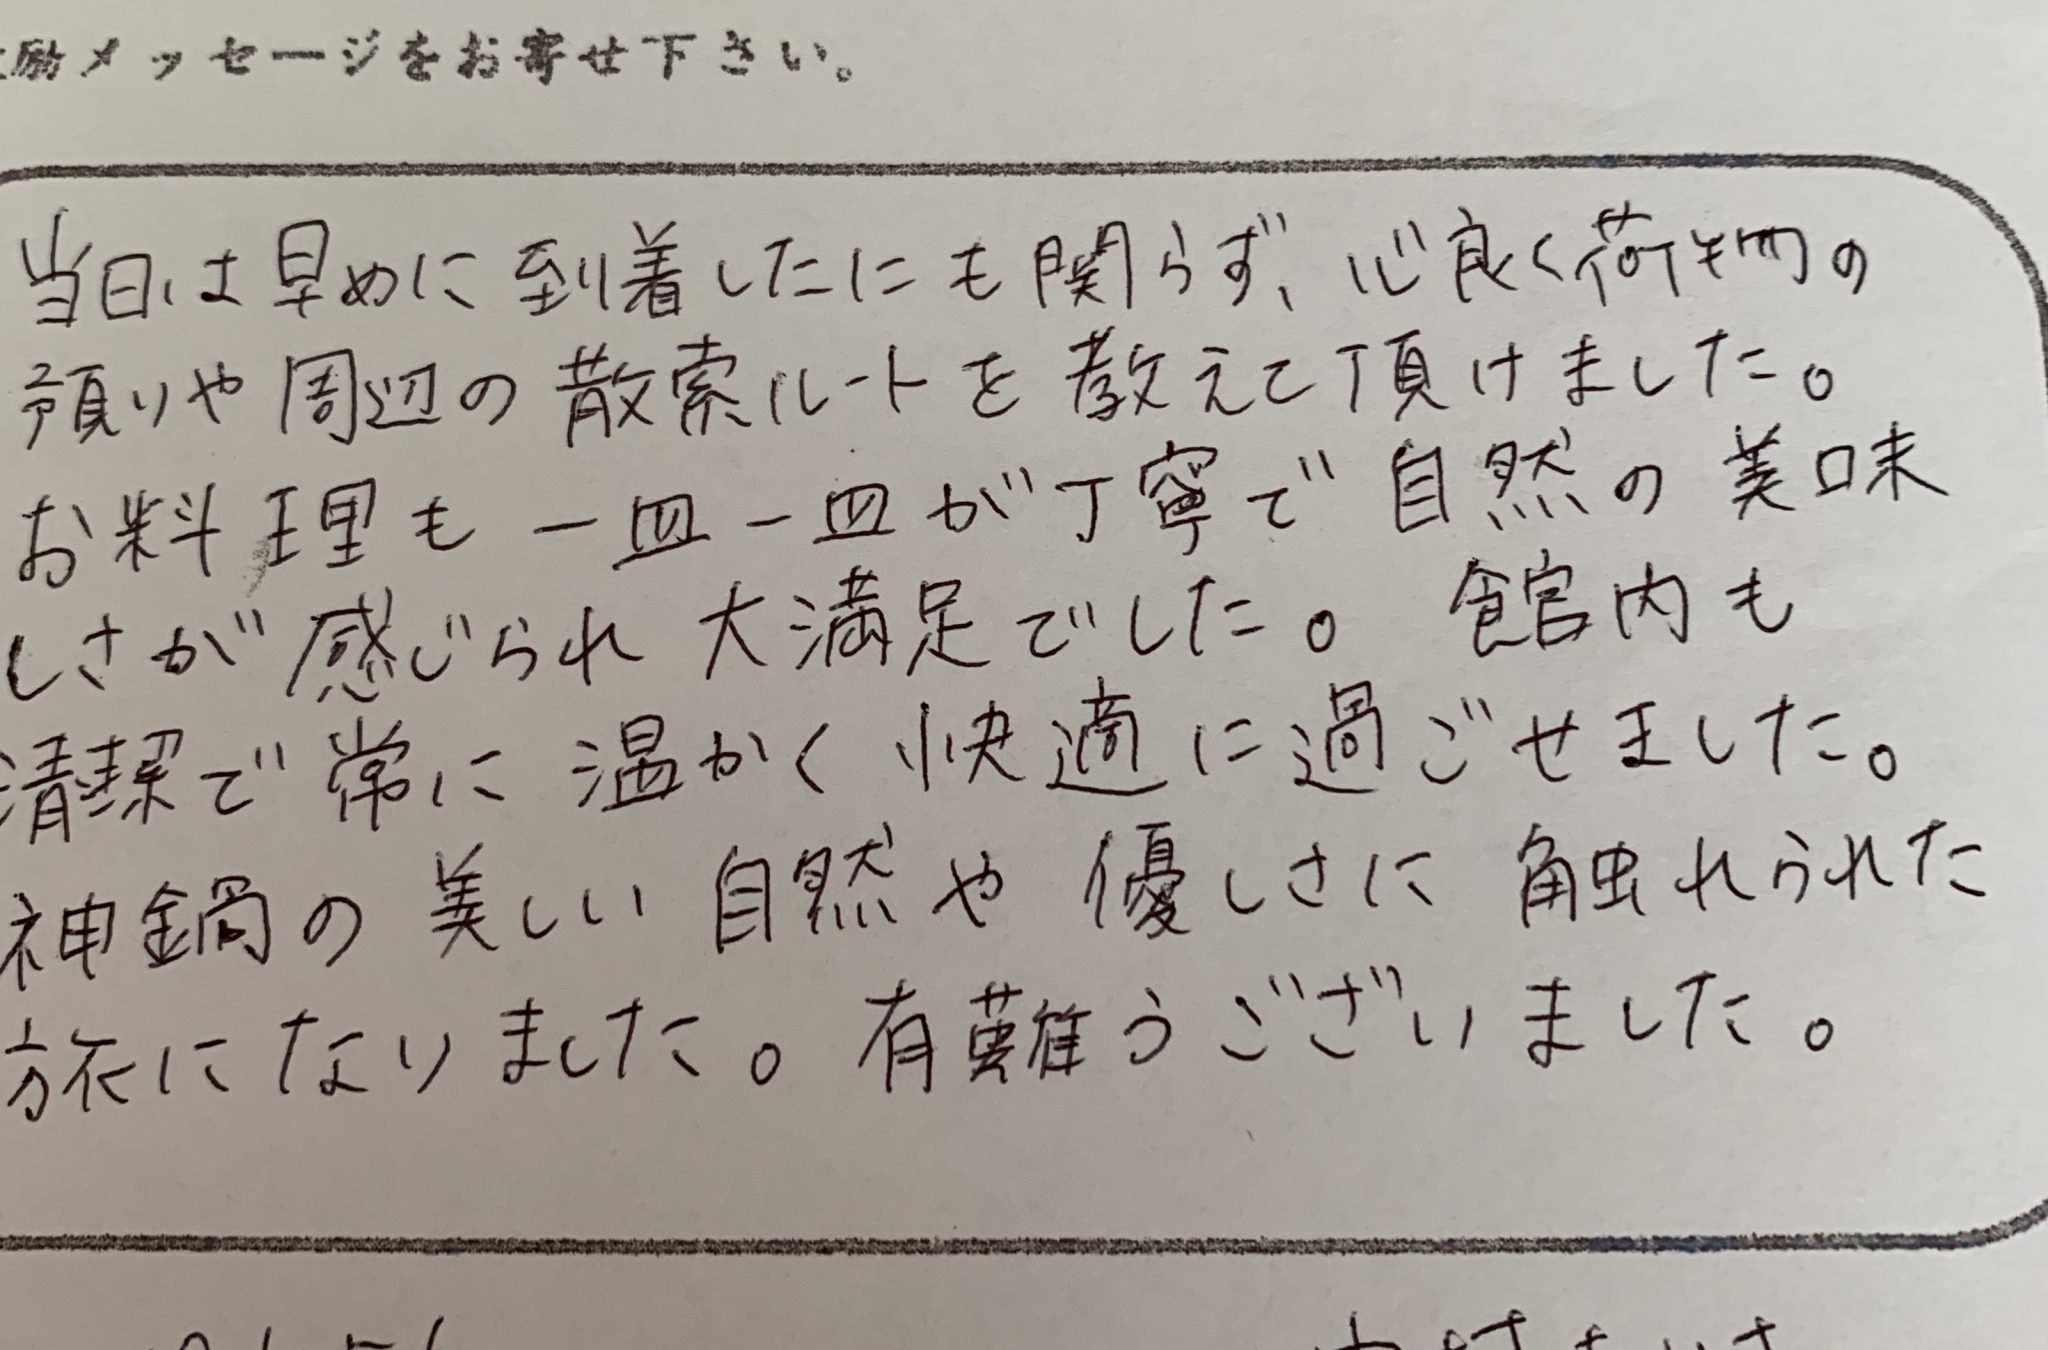 励メッセージをお寄せ下さい。
当日は早めに到着したにも関らず、心良く荷物の
預りや周辺の散索ルートを教えて頂けました。
お料理も一皿一皿が丁寧で自然の美味
しさが感じられ大満足でした。館内も
清潔で常に温かく快適に過ごせました。
神鍋の美しい自然や優しさに触れられた
旅になりました。有難うございました。